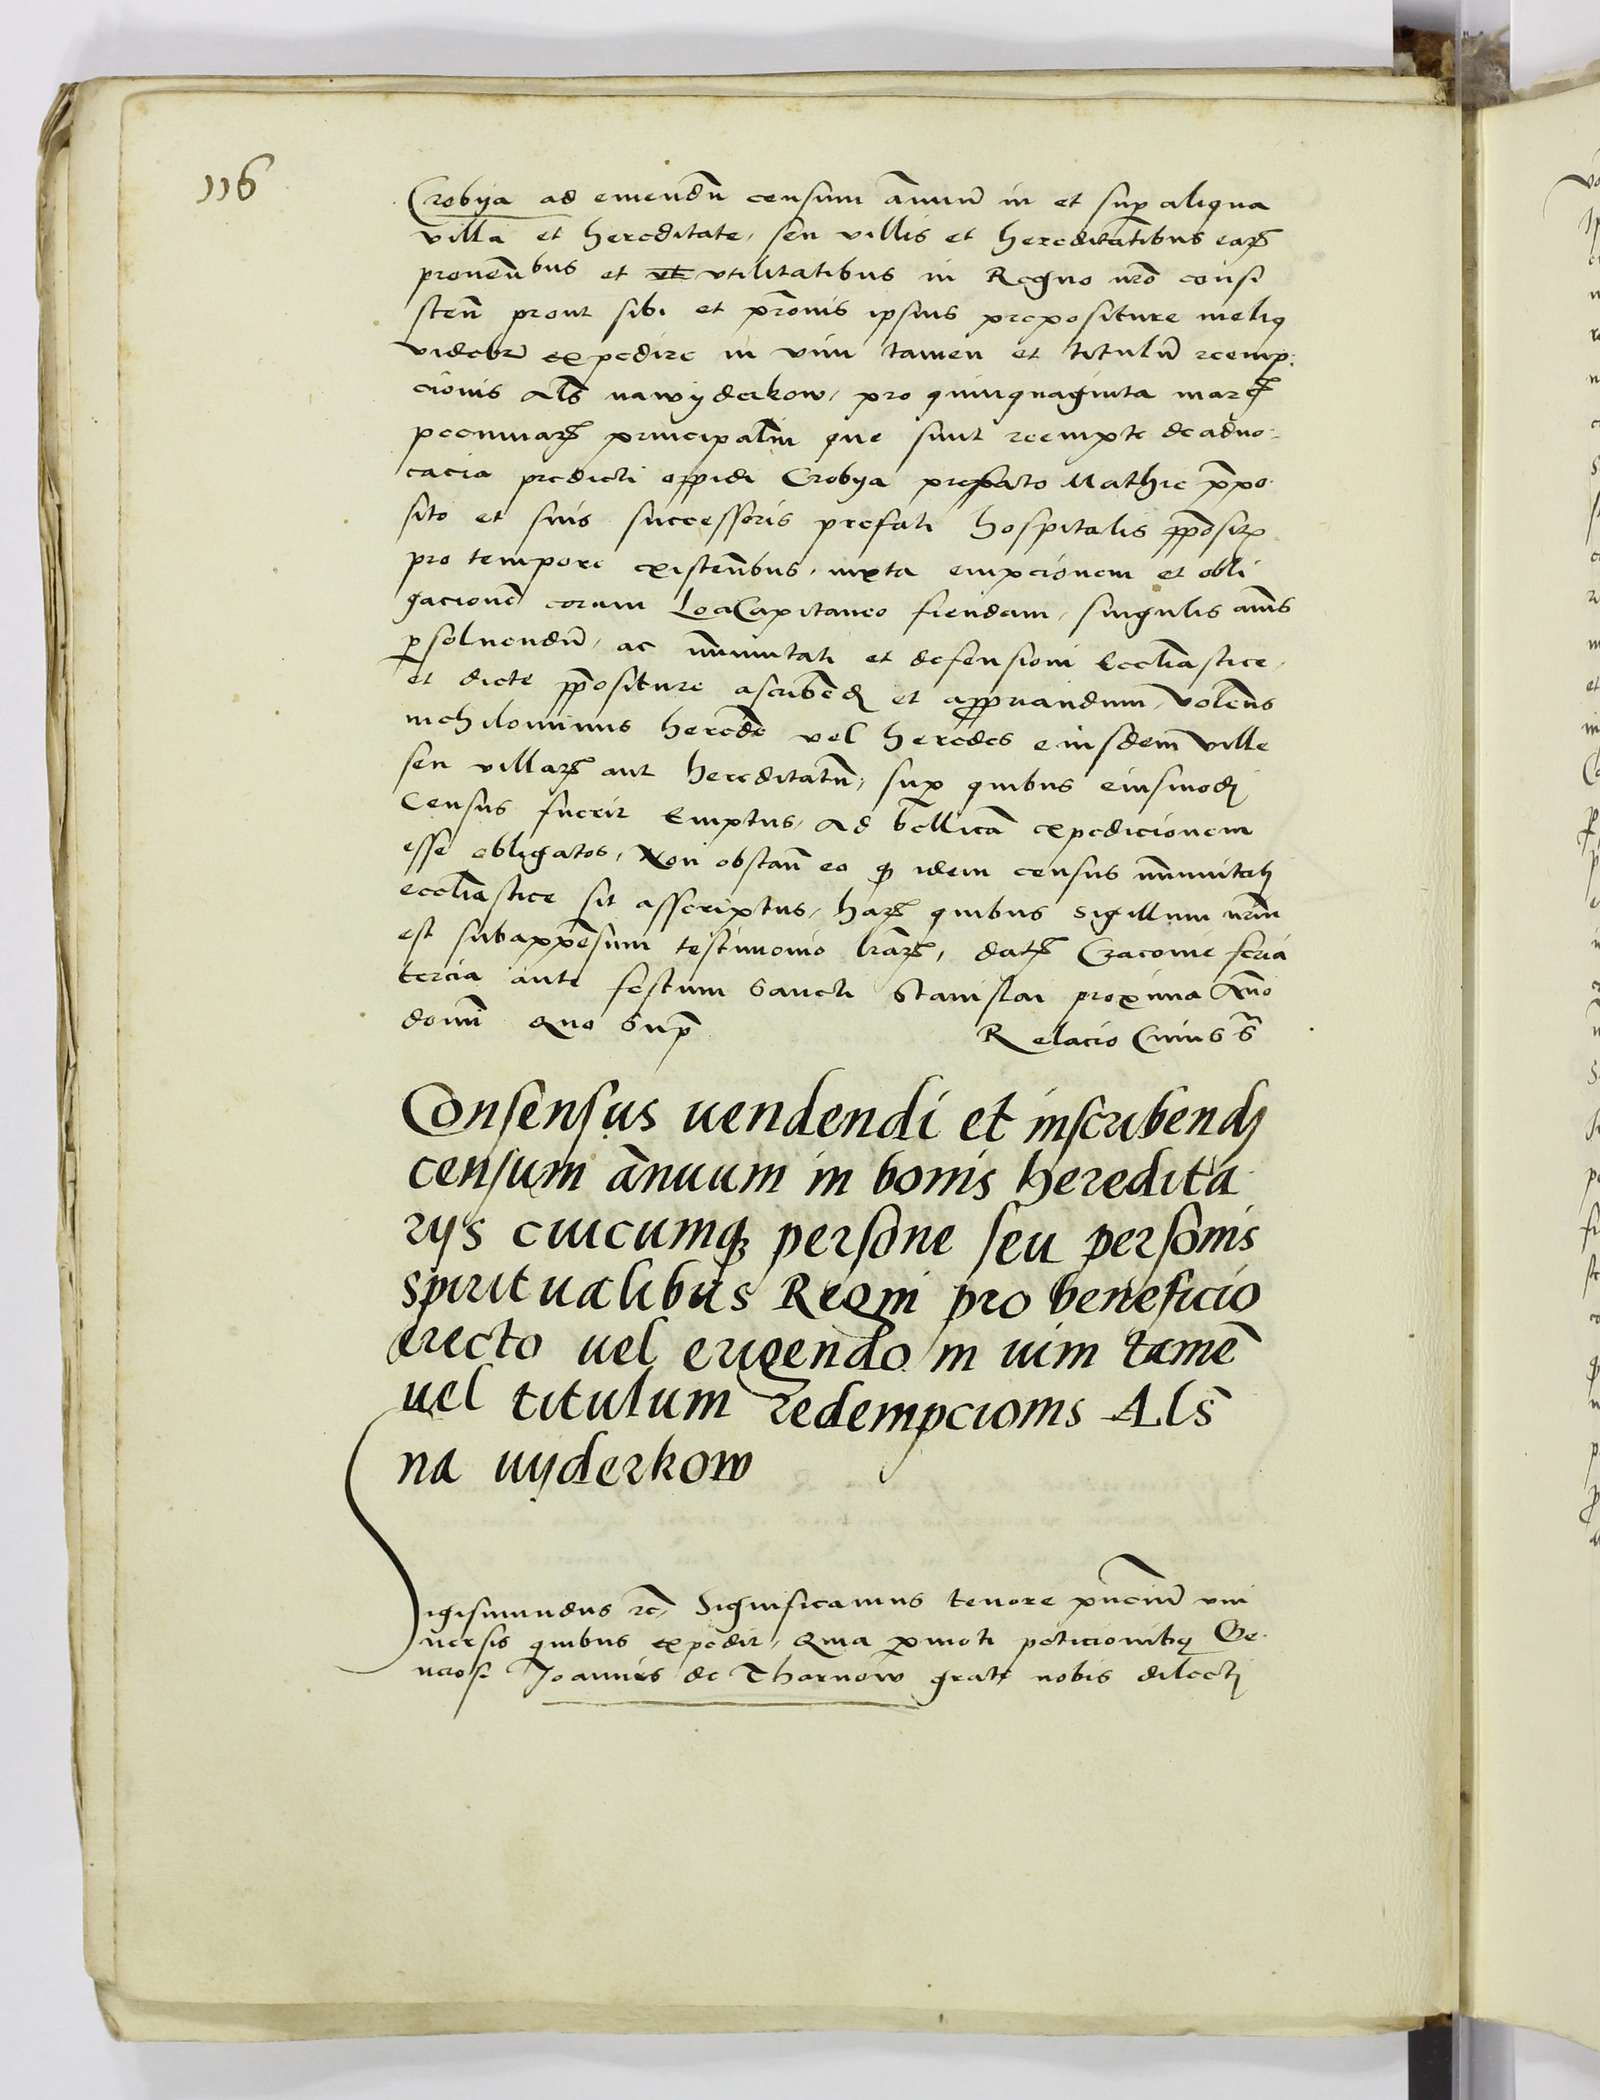 116
Crobya ad emendū censum ānuū in et sup aliqua
villa et hereditate, seu villis et hereditatibus earꝫ
proventibus et ut utilitatibus in Regno nrō consi
sten̄ prout sibi et pronis ipsius prepositure meliꝯ
videbr̄ expedire in vim tamen et titulū reemp:
cionis als̄ nawyderkow, pro quinquaginta marcꝫ
pecuniarꝫ principalin que sunt reempte de advo:
cacia predicti oppidi Crobya prefato Mathie p̄po
sito et suis successoris prefati hospitalis p̄posit
pro tempore existen̄bus, iuxta empcionem et obli
gacionē coram Loci Capitaneo fiendam, singulis annis
ꝑsolvendū, ac im̄unitati et defensioni Ecclīastice,
et dicte p̄positure ascribēdꝭ et appropriandum, volen̄s
nichilominus heredē vel heredes eiusdem ville
seu villarꝫ aut hereditatū, sup quibus eiusmodi
Census fuerit Emptus, ad bellicā expedicionem
esse obligatos, Non obstan̄ eo ꝙ idem census im̄unitati
ecclīastice sit asscriptus, harꝫ quibus sigillum nrm̄
est subappensum testimonio lrārꝫ, datꝫ Cracovie feria
tercia ante festum Sancti Stanislai proxima Ān̄o
domī Quo Supᷓ
Relacio Cuius S̄
Consensus uendendi et inscribendi
censum ānuum in bonis heredita
rijs cuicumqꝫ persone seu personis
spiritualibus Regni pro beneficio
erecto uel erigendo in uim tamē
uel titulum redempcionis Als̄
na uyderkow
Sigismundus rc̄, Significamus tenore pn̄ciū uni
versis quibus expedit, Quia ꝑmoti peticionibꝫ Ge
nerosi Joannis de Tharnow grate nobis dilecti